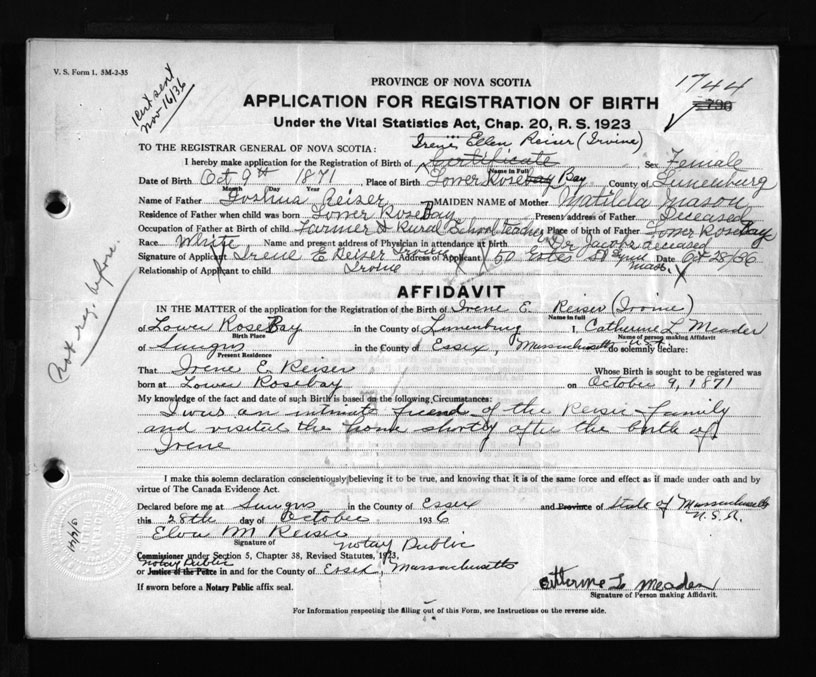 V. S. Form 1. 5M-2-35
Cert sent
Nov 16/36
PROVINCE OF NOVA SCOTIA
1744
APPLICATION FOR REGISTRATION OF BIRTH
Under the Vital Statistics Act, Chap. 20, R. S. 1923
TO THE REGISTRAR GENERAL OF NOVA SCOTIA: Irene Ellen Reiser (Irvine)
I hereby make application for the Registration of Birth of Certificate Sex Female
Name in Full
Date of Birth Oct 9th 1871 Place of Birth Lower Rosebay Bay County of Lunenburg
Month Day Year
Name of Father Joshua Reiser MAIDEN NAME of Mother Matilda Mason
Residence of Father when child was born Lower Rose Bay Present address of Father Deceased
Occupation of Father at Birth of Child Farmer & Rural School teacher Place of Birth of Father Lower Rose Bay
Race White Name and present address of Physician in attendance at birth Dr Jacobs deceased
Signature of Applicant Irene E Reiser Irvine Address of Applicant 50 Estes St Lynn Mass. Date Oct 28/36
Relationship of Applicant to child
Not reg. before.
AFFIDAVIT
IN THE MATTER of the application for the Registration of the Birth of Irene E. Reiser (Irvine)
Name in full
of Lower Rose Bay in the County of Lunenburg I, Catherine L Meader
Birth Place Name of person making Affidavit
of Saugus in the County of Essex, Massachusetts U.S.A. do solemnly declare:
Present Residence
That Irene E. Reiser Whose Birth is sought to be registered was
born at Lower Rosebay on October 9, 1871
My knowledge of the fact and date of such Birth is based on the following Circumstances:
I was an intimate friend of the Reiser family
and visited the home shortly after the birth of
Irene
I make this solemn declaration conscientiously believing it to be true, and knowing that it is of the same force and effect as if made under oath and by
virtue of The Canada Evidence Act.
Declared before me at Saugus in the County of Essex and Province of State of Massachusetts
U.S.A.
this 28th day of October 1936
Elva M Reiser
Signature of
Notary Public
Commissioner under Section 5, Chapter 38, Revised Statutes, 1923,
Notary Public
or Justice of the Peace in and for the County of Essex, Massachusetts
If sworn before a Notary Public affix seal.
Catherine L Meader
Signature of Person making Affidavit.
For Information respecting the filling out of this Form, see Instructions on the reverse side.